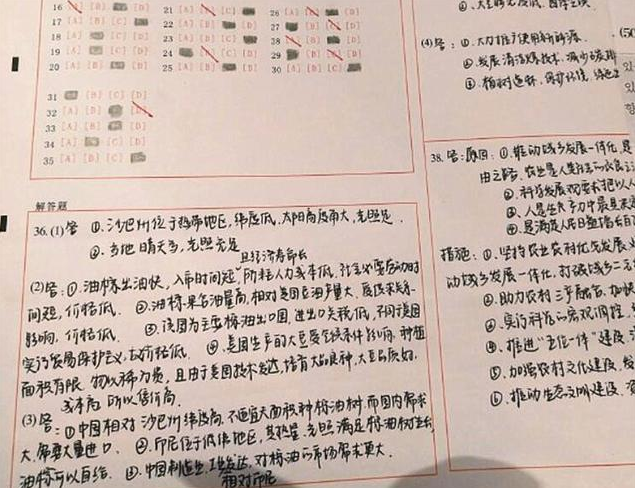 16 [B] [C] [D]
17 [A] [B] [D]
18 [A] [C] [D]
19 [A] [C] [D]
20 [A] [B] [C]
21 [A] [C]
22 [A] [B] [C]
23 [A] [B] [C]
24 [C] [D]
25 [A] [C] [D]
26 [A] [D]
27 [A] [C] [D]
28 [B] [D]
29 [C] [D]
30 [A] [B] [C]
31 [B] [C] [D]
32 [A] [B]
33 [A] [B] [D]
34 [A] [C] [D]
35 [A] [B] [C]
解答题
36.(1)答 ①.沙巴州位于热带地区,纬度低,太阳高度角大,光照足.
②.当地晴天多,光照充足
且经济寿命长
(2)答:①.油棕出油快,入市时间短,所耗人力成本低,社会必要劳动时
间短,价格低. ②.油棕果含油量高,相对美国豆油产量大,
影响,价格低. ③.该国为主要棕油出口国,进出口关税低,不同该国
实行贸易保护主义,故价格低. ④.美国生产的大豆受气候条件影响,种植
面积有限 物以稀为贵,且由于美国技术发达,培育大品良种,大豆品质好,
成本高 所以售价高.
(3)答:①中国相对沙巴州纬度高,不适宜大面积种棕油树,而国内需求
大,需要大量进口. ②.印尼位于低纬地区,其热量,光照满足棕油树生长
油棕可以自给. ③.中国制造业,工业发达,对棕油的市场需求更大.
相对印尼
(4)答:①.大力推广使用新能源.
②.发展清洁煤技术,减少碳排
③.植树造林,保护环境,绿色
38.答:原因:①.推动城乡发展一体化,是
由之路,农业是人类的衣食之
②.科学发展观要求把以人
③.人是生产力中最具
措施:①.坚持农业农村优先发展
动城乡发展一体化,打破城乡二
②.助力农村三产融合,加快
③.实行科学的宏观调控,
④.推进"五位一体"建设,
⑤.加强农村文化建设,发
⑥.推动生态文明建设,